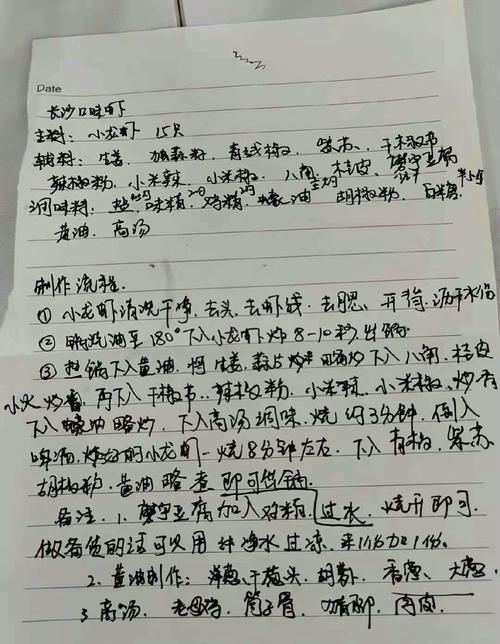 Date
长沙口味虾
主料: 小龙虾 15只
辅料: 生姜. 青线椒, 紫苏、干椒节
辣椒粉, 小米辣, 小米椒, 八角, 桂皮、魔芋豆腐
调味料: 盐 味精, 鸡精, 蚝油 胡椒粉, 白糖
黄油. 高汤
制作流程.
① 小龙虾清洗干净, 去头, 去虾线. 去腮、开背, 沥干水份
② 锅洗油至 180° 下入小龙虾炸 8-10秒, 出锅
③ 热锅下入黄油, 将生姜, 蒜片炒 下入八角, 桂皮
小火炒香, 再下入干椒节, 辣椒粉, 小米辣, 小米椒, 炒香
下入 略炒, 下入高汤调味, 烧约3分钟, 倒入
啤酒, 的小龙虾一烧8分钟左右, 下入青椒, 紫苏
胡椒粉, 黄油略煮即可出锅
备注: 1. 魔芋豆腐加入鸡精 过水, 烧开即可
做备货的话可以用纯净水过凉,
2. 黄油制作: 洋葱、干葱头, 胡萝卜, 香葱、大葱
3 高汤, 老母鸡, 筒子骨, 肉皮.